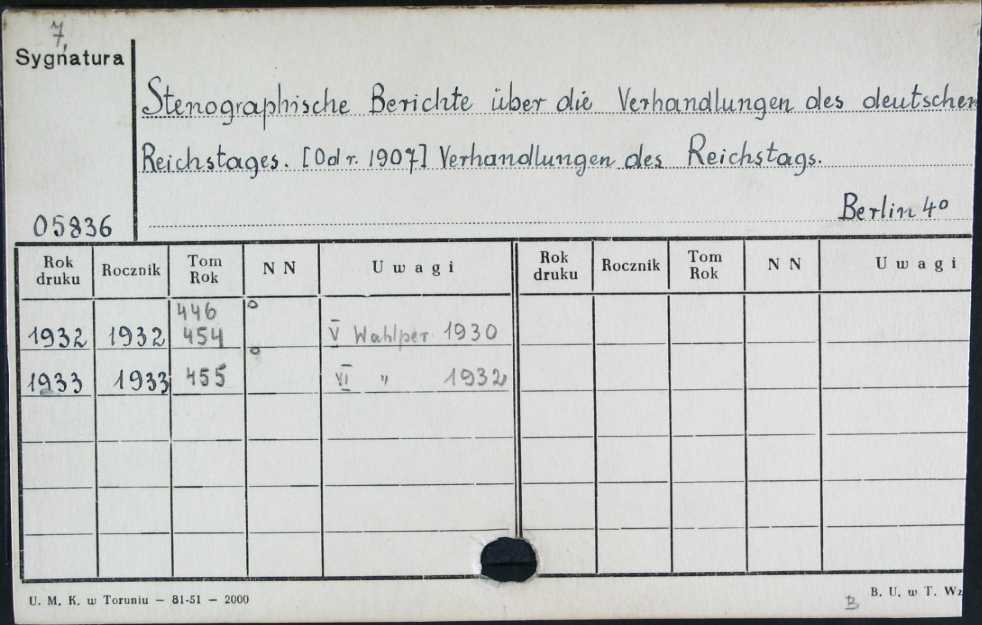 7,
Sygnatura
Stenographische Berichte über die Verhandlungen des deutschen
Reichstages. [Od r. 1907] Verhandlungen des Reichstags.
Berlin 4°
05836
Rok druku Rocznik Tom Rok N N Uwagi Rok druku Rocznik Tom Rok N N Uwagi
446
1932 1932 454 V Wahlper 1930
1933 1933 455 VI " 1932
U. M. K. w Toruniu — 81-51 — 2000
B
B. U. w T. Wz